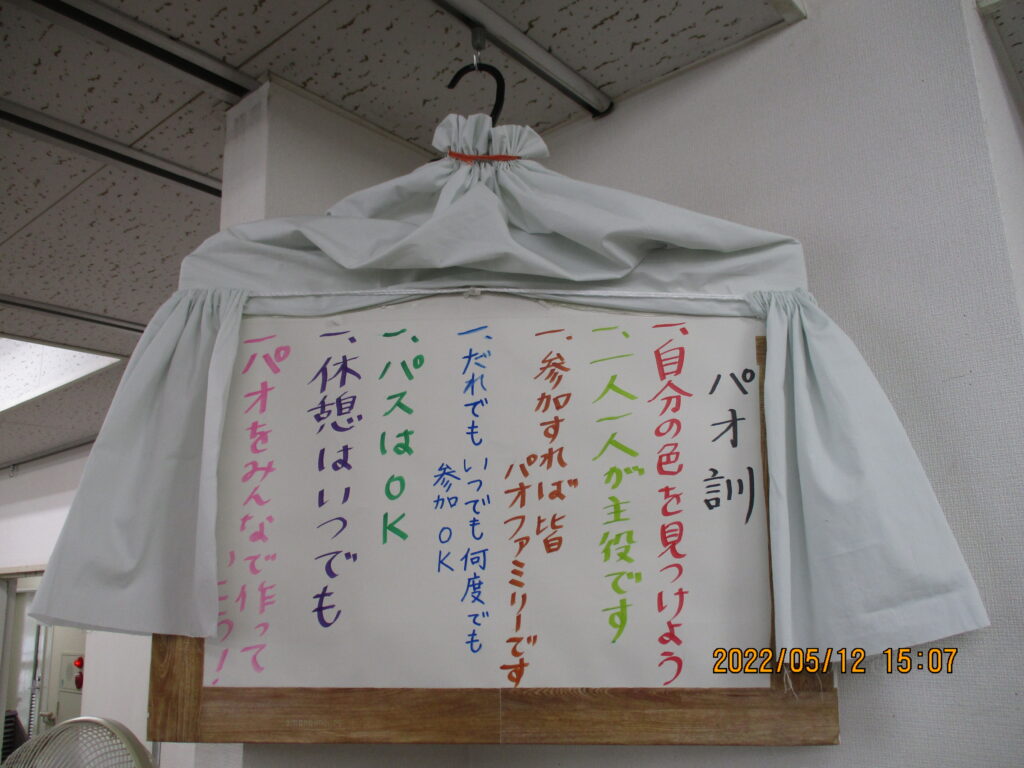 パオ訓
一、自分の色を見つけよう
一、一人一人が主役です
一、参加すれば皆
パオファミリーです
一、だれでもいつでも何度でも
参加OK
一、パスはOK
一、休憩はいつでも
一、パオをみんなで作って
2022/05/12 15:07